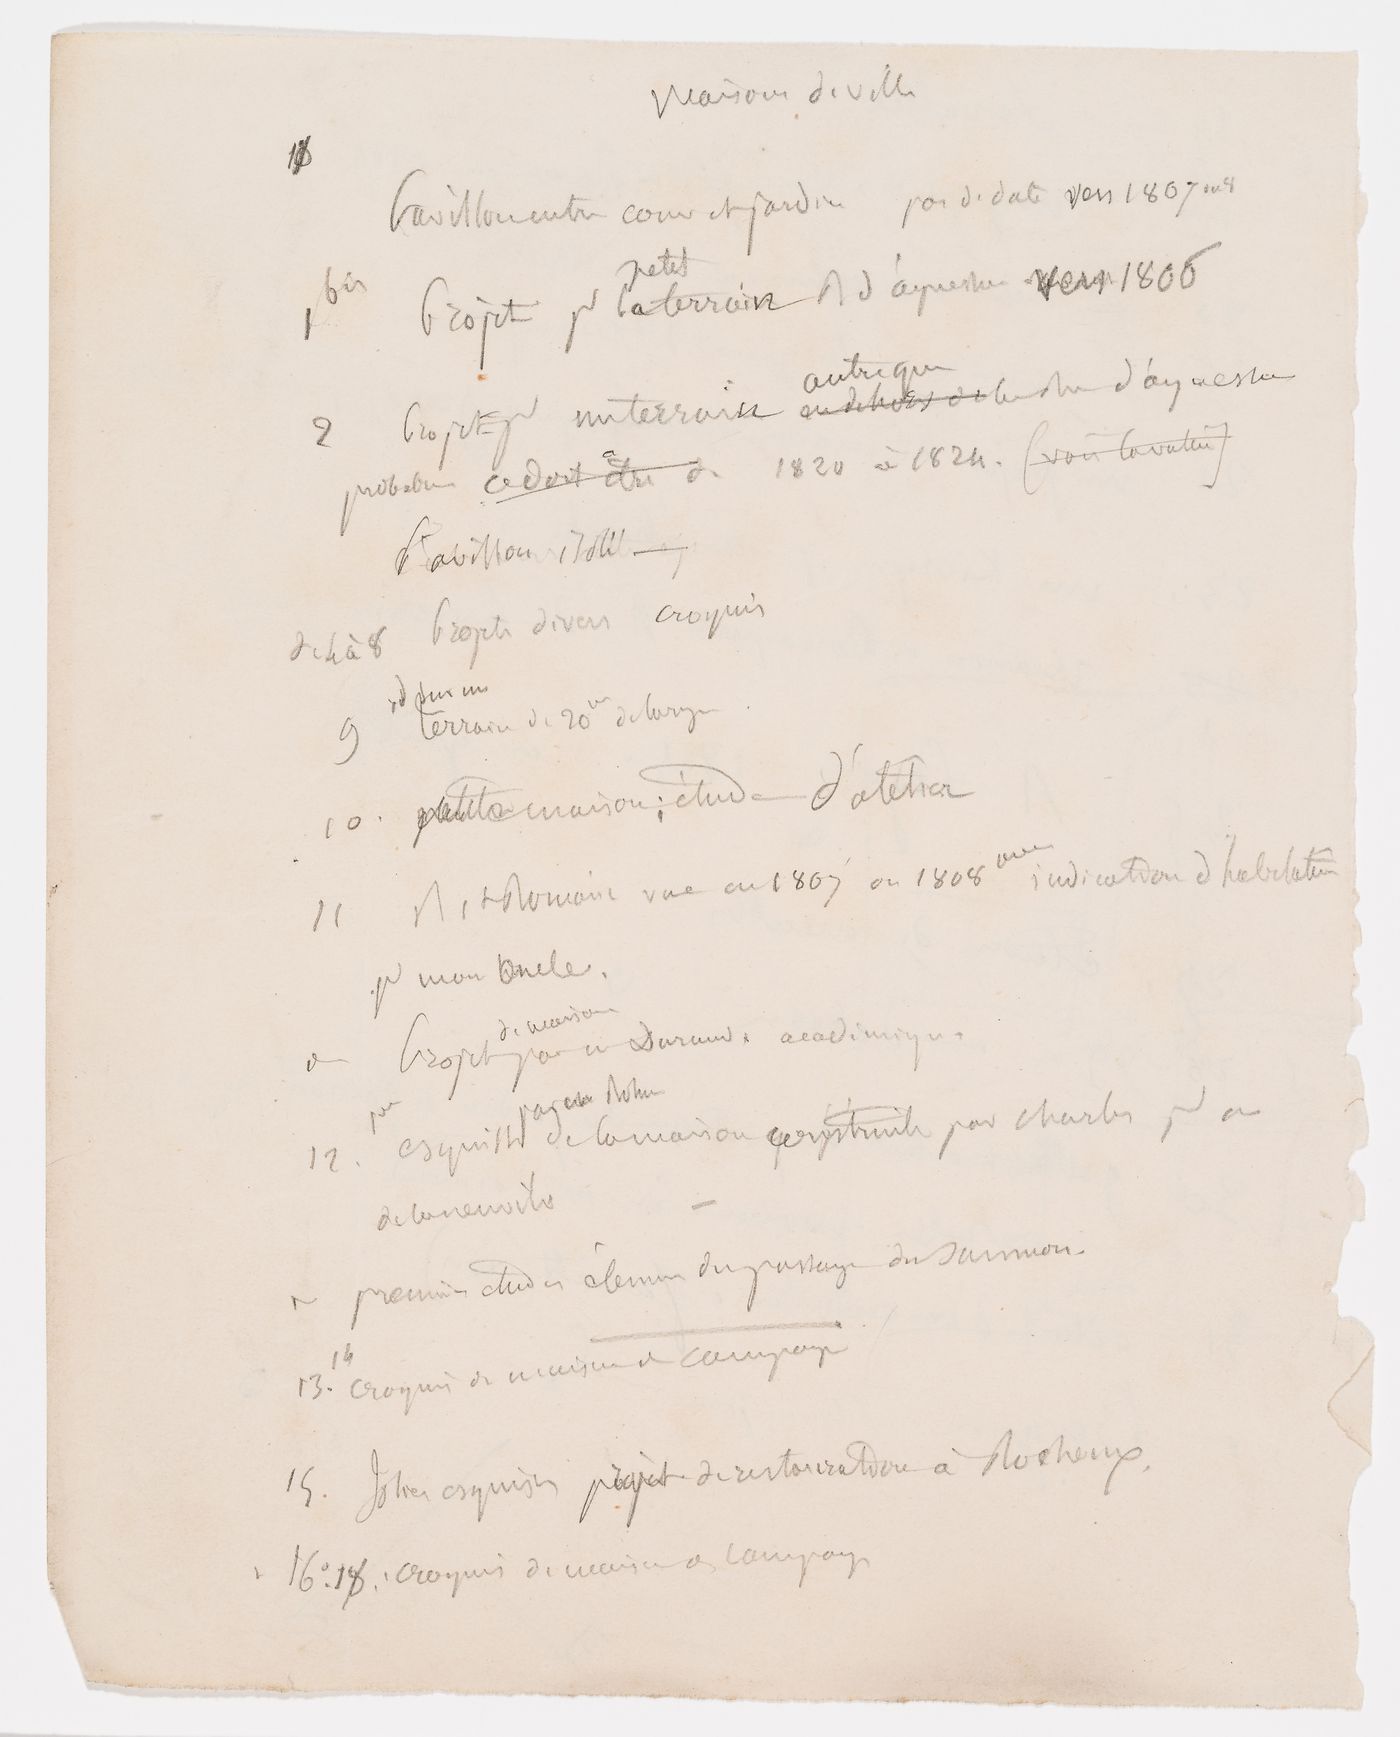 Maisons de ville
1
Pavillon entre cour et jardin pas de date vers 1807 ou 8
1 bis Projet pr petit terrain R d'aguesseau vers 1806
2 Projet pr un terrain autre que rue d'aguesseau
ce doit être de 1820 à 1824. (voir
Pavillon
de 4 à 8 Projets divers croquis
9 id sur un terrain de 20m de large
10. petite maison; étude d'atelier
11 R St Romain vue en 1807 ou 1808 avec indication d'habitation
pr mon oncle.
Projet de maison par Durand. académique.
12. esquisse de la maison construite par Charles pr
premières études du passage du Saumon.
13. 14 croquis de maison de campagne
15. Jolies esquisses projet de restauration à Rocheux.
16 à 18. croquis de maison de campagne